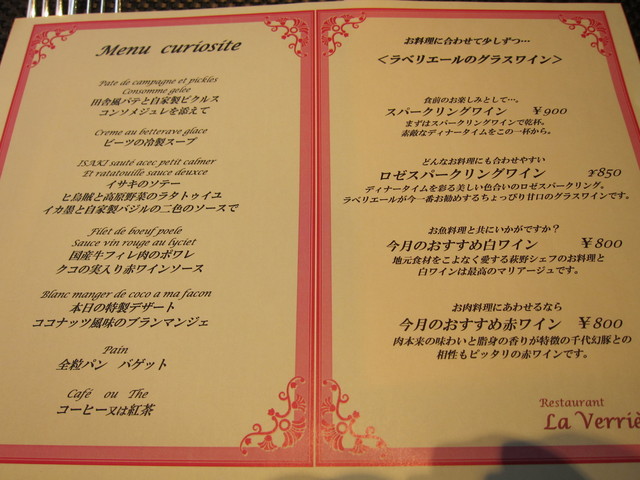 Menu curiosite
Pate de campagne et pickles
Consomme gelee
田舎風パテと自家製ピクルス
コンソメジュレを添えて
Creme au betterave glace
ビーツの冷製スープ
ISAKI sauté acec petit calmer
Et ratatouille sauce deuxce
イサキのソテー
ヒ烏賊と高原野菜のラタトゥイユ
イカ墨と自家製バジルの二色のソースで
Filet de boeuf poele
Sauce vin rouge au lyciet
国産牛フィレ肉のポワレ
クコの実入り赤ワインソース
Blanc manger de coco a ma facon
本日の特製デザート
ココナッツ風味のブランマンジェ
Pain
全粒パン　バゲット
Café ou The
コーヒー又は紅茶
お料理に合わせて少しずつ…
＜ラベリエールのグラスワイン＞
食前のお楽しみとして…。
スパークリングワイン　￥900
まずはスパークリングワインで乾杯。
素敵なディナータイムをこの一杯から。
どんなお料理にも合わせやすい
ロゼスパークリングワイン　￥850
ディナータイムを彩る美しい色合いのロゼスパークリング。
ラベリエールが今一番お勧めするちょっぴり甘口のグラスワインです。
お魚料理と共にいかがですか？
今月のおすすめ白ワイン　￥800
地元食材をこよなく愛する萩野シェフのお料理と
白ワインは最高のマリアージュです。
お肉料理にあわせるなら
今月のおすすめ赤ワイン　￥800
肉本来の味わいと脂身の香りが特徴の千代幻豚との
相性もピッタリの赤ワインです。
Restaurant
La Verriè